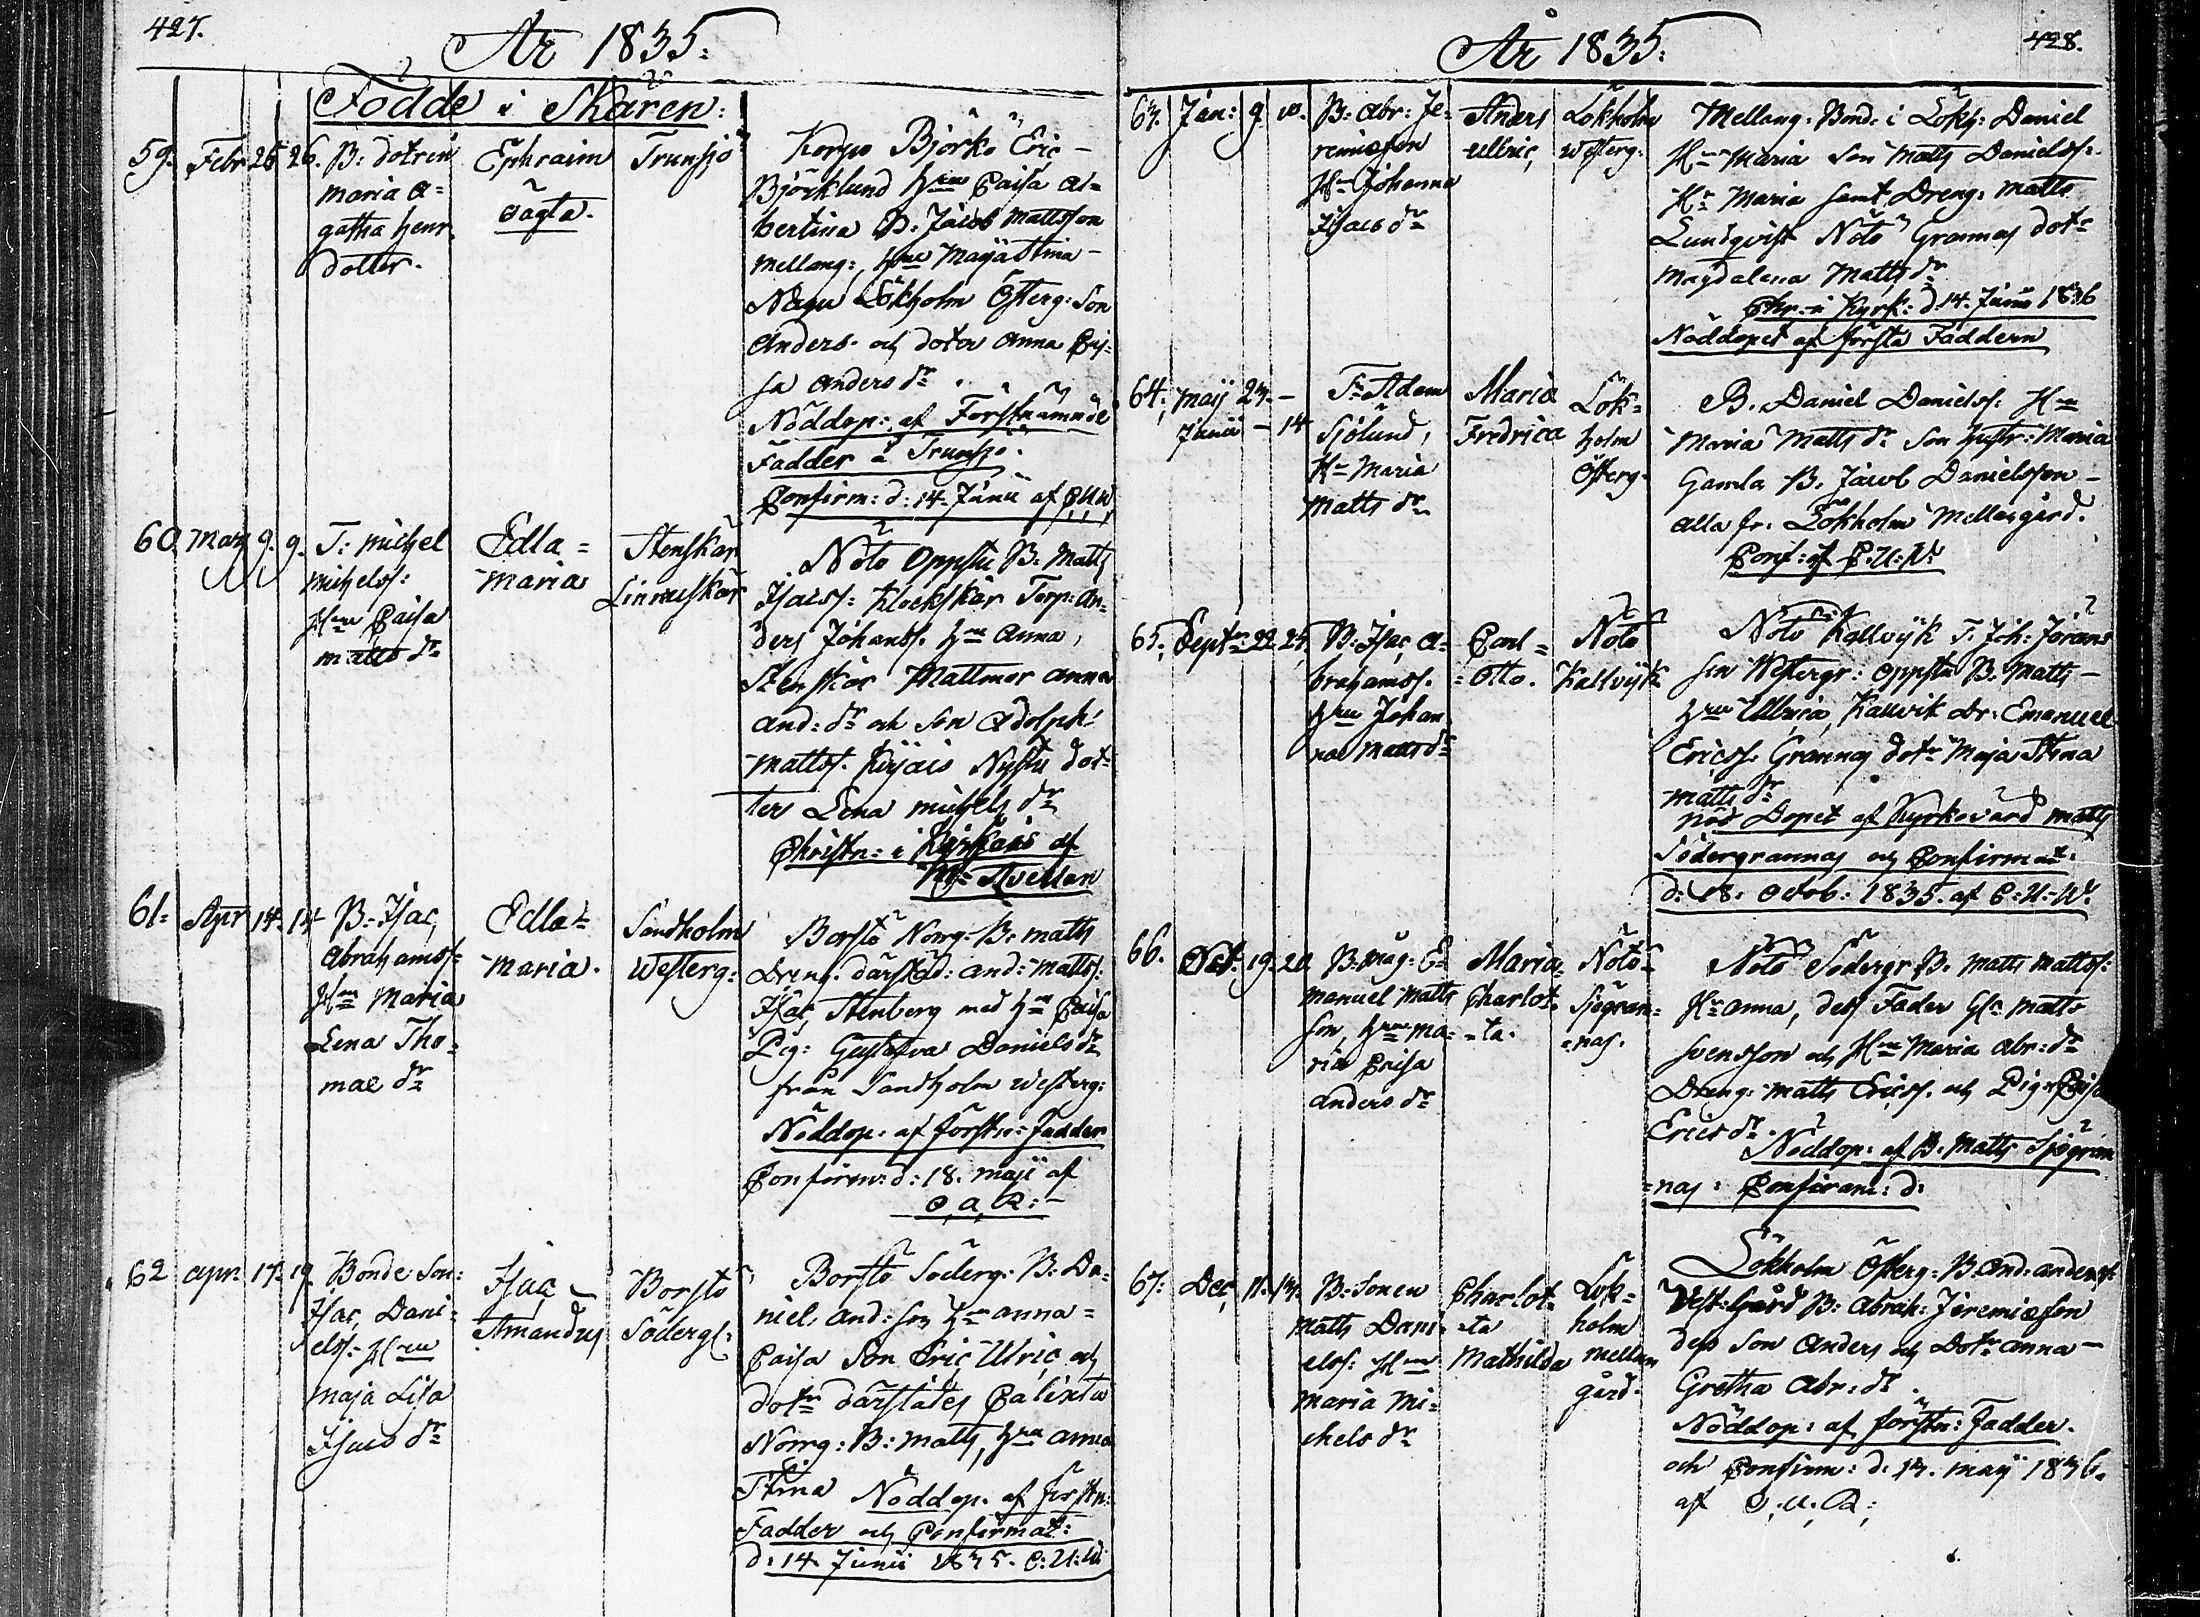 427.
År 1835.
Födde i Skären:
59. Febr 25 26. B: dotren
Maria A=
gatha Henr.
dotter.
Ephraim
oägta.
Trunsjö
Korpo Björkö Eric
Björklund Hru Caisa Al=
bertina B. Jacob Mattsson
Mellang: Hru Maja Stina
Nagu Lökholm Österg: Son
Anders och doter Anna Cai=
sa Anders dr.
Nöddop: af Förstnämnde
Fadder i Trunsjö.
Confirm: d: 14 Junii af C U W
60. Mars 9. 9. T: Michel
Michelss:
Hru Caisa
Matts dr
Edla=
Maria
Stenskär
Nötö Oppstu B: Matts
Isacss: Klockskär Torp: An=
ders Johanss. Hru Anna,
Stenskär Mattmor Anna
And: dr och Son Adolph
Mattss. Nystu dot=
ter Lena Michels dr
Christn: i af
61. Apr 14. 14 B: Isac
Abrahamss:
Hru Maria
Lena Tho=
mae dr
Edla=
Maria.
Sandholm
Westerg:
Borstö Norrg: B: Matts
Dreng. därstäd: And: Mattss:
Isac Stenberg med Hru Caisa
Pig: Gustafva Daniels dr
från Sandholm Westerg:
Nöddop: af förstn: Fadder
Confirm: d: 18. Maji af
62 Apr: 17. 19. Bonde Son:
Isac Dani=
elss: Hru
Maja Lisa
Isacs dr
Isac
Amandus
Borstö
Söderg:
Borstö Söderg: B: Da=
niel And: son Hru Anna=
Caisa Son Eric Ulric och
dotr därstädes Calixta
Norrg: B: Matts, Hru Anna
Stina Nöddop. af förstn:
Fadder och Confirmat:
d: 14 Junii 1835. C: U: W
År 1835.
428.
63. Jan: 9. 10. B: Abr: Je=
remiæson
Hru Johanna
Isacs dr
Anders
Ullric
Lökholm
Westerg:
Mellang: Bond: i Lökh: Daniel
Hru Maria Son Matts Danielss:
Hr Maria samt Dreng: Matts
Lundqvist Nötö Grannas dotr
Magdalena Matts dr
Chr: i Kyrk: d: 14. Junii 1836
Nöddopet af första Faddern
64. Maij 23. –
Junii – 14
Fr Adam
Sjölund,
Hr Maria
Matts dr
Maria
Fredrica
Lök=
holm
Österg.
B. Daniel Danielss: Hru
Maria Matts dr Son hustr: Maria
Gamla B. Jacob Danielsson
alla fr. Lökholm Mellangård.
Conf: af C. U. W
65. Septr 22. 24. B: Isac A=
brahamss.
Hru Johan
na Matts dr
Carl=
=Otto.
Nötö
Kallvijk
Nötö Kallvijk T: Joh: Jörans
son Westergr: Oppstu B. Matts
Hru Ullrica, Kallvik Dr: Emanuel
Ericss. Grannas dotr Maja Stina
Matts dr
Nöd Döpet af Kyrkovärd Matts
Södergrannas och Confirmat:
d: 18. Octob: 1835. af C. U. W.
66. Oct: 19. 20 B: Måg: E=
manuel Matts
son, Hru Ma=
ria Caisa
Anders dr
Maria=
Charlot=
=ta.
Nötö=
Sjögran=
=nas.
Nötö Södergr B. Matts Mattss:
Hr Anna, dess Fader Gl. Matts
Svensson och Hru Maria Abr: dr
Dreng: Matts Ericss. och Pig: Caisa
Erics dr.
Nöddop: af B. Matts Sjögran
=nas: Confirm: d:
67. Dec. 11. 13. B: Sonen
Matts Dani=
elss: Hru
Maria Mi=
chels dr
Charlot=
=ta
Mathilda
Lök=
holm
Mellan
gård.
Lökholm Österg: B. And: Anderss:
Vest: Gård B: Abrah: Jeremiæson
dess Son Anders och Dotr Anna
Gretha Abr: dr.
Nöddop: af förstn: Fadder.
och Confirm: d. 13. Maij 1836.
af